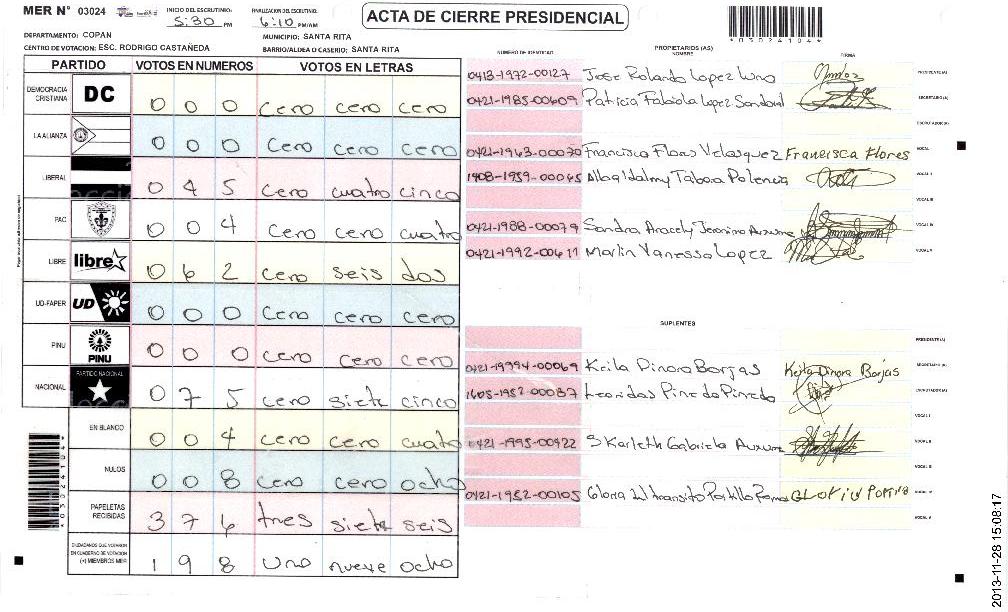 MER Nº 03024
INICIO DEL ESCRUTINIO: 5:30 PM
FINALIZACION DEL ESCRUTINIO: 6:10 PM/AM
ACTA DE CIERRE PRESIDENCIAL
*03024104*
DEPARTAMENTO: COPAN
MUNICIPIO: SANTA RITA
CENTRO DE VOTACION: ESC. RODRIGO CASTAÑEDA
BARRIO/ALDEA O CASERIO: SANTA RITA
PARTIDO VOTOS EN NUMEROS VOTOS EN LETRAS
DEMOCRACIA CRISTIANA DC 0 0 0 cero cero cero
LA ALIANZA 0 0 0 cero cero cero
LIBERAL 0 4 5 cero cuatro cinco
PAC 0 0 4 cero cero cuatro
LIBRE libre 0 6 2 cero seis dos
UD-FAPER UD 0 0 0 cero cero cero
PINU PINU 0 0 0 cero cero cero
NACIONAL PARTIDO NACIONAL 0 7 5 cero siete cinco
EN BLANCO 0 0 4 cero cero cuatro
NULOS 0 0 8 cero cero ocho
PAPELETAS RECIBIDAS 3 7 6 tres siete seis
CIUDADANOS QUE VOTARON EN CUADERNO DE VOTACION (+) MIEMBROS MER 1 9 8 uno nueve ocho
NUMERO DE IDENTIDAD PROPIETARIOS (AS) NOMBRE FIRMA
0413-1972-00127 Jose Rolando Lopez PRESIDENTE(A)
0421-1985-00609 Patricia Fabiola Lopez Sandoval SECRETARIO(A)
ESCRUTADOR(A)
0421-1963-00070 Francisca Flores Velasquez Francisca Flores VOCAL I
1408-1959-00045 Alba Idalmy Tabora Polencia VOCAL II
VOCAL III
0421-1988-00079 Sandra Aracely Jeronimo VOCAL IV
0421-1992-00611 Marlin Vanessa Lopez VOCAL V
SUPLENTES
PRESIDENTE(A)
0421-1994-00069 Keila Dinora Borjas Keila Dinora Borjas SECRETARIO(A)
1605-1952-00037 Leonidas Pineda Pineda ESCRUTADOR(A)
VOCAL I
0421-1995-00422 Skarleth Gabriela VOCAL II
VOCAL III
0421-1952-00105 Gloria del transito Portillo VOCAL IV
VOCAL V
*03024104*
2013-11-28 15:08:17